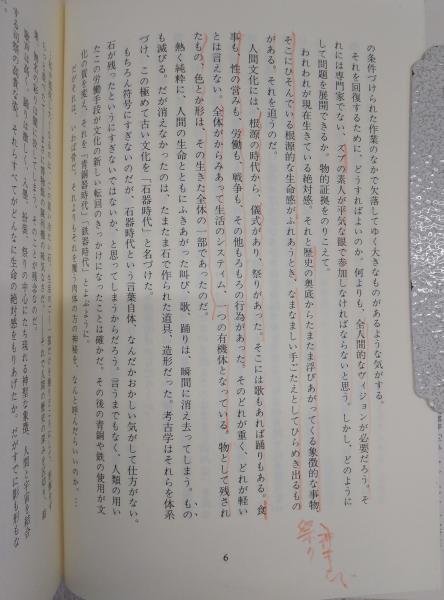 の条件づけられた作業のなかで欠落してゆく大きなものがあるような気がする。
それを回復するために、どうすればよいのか。何よりも、全人間的なヴィジョンが必要だろう。そ
れには専門家でない、ズブの素人が平気な眼で参加しなければならないと思う。しかし、どのように
して問題を展開できるか。物的証拠をのりこえて。
われわれが現在生きている絶対感、それと歴史の奥底からたまたま浮びあがってくる象徴的な事物、
そこにひそんでいる根源的な生命感がふれあうとき、なまなましい手ごたえとしてひらめき出るもの
がある。それを追うのだ。
人間文化には、根源の時代から、儀式があり、祭りがあった。そこには歌もあれば踊りもある。食
事も、性の営みも、労働も、戦争も、その他もろもろの行為があった。そのどれが重く、どれが軽い
とは言えない。全体がからみあって生活のシステム、一つの有機体となっている。物として残され
たもの、色とか形は、その生きた全体の一部であったのだ。
熱く純粋に、人間の生命とともにふきあがった叫び、歌、踊りは、瞬間に消え去ってしまう。もの
も滅びる。だが消えなかったのは、たまたま石で作られた道具、造形だった。考古学はそれらを体系
づけ、この極めて古い文化を「石器時代」と名づけた。
もちろん符号にすぎないのだが、石器時代という言葉自体、なんだかおかしい気がして仕方がない。
石が残ったというにすぎないではないか、と思ってしまうからだろう。言うまでもなく、人類の用い
たこの労働手段が文化の新しい転回のきっかけになったことは確かだ。その後の青銅や鉄の使用が文
化の質を変え、それを「青銅器時代」「鉄器時代」とよぶように。
だがそれは、いわば骨だ。それよりもそれを覆う肉体の方の神秘を、なんと呼んだらいいのか。…
6
祭り